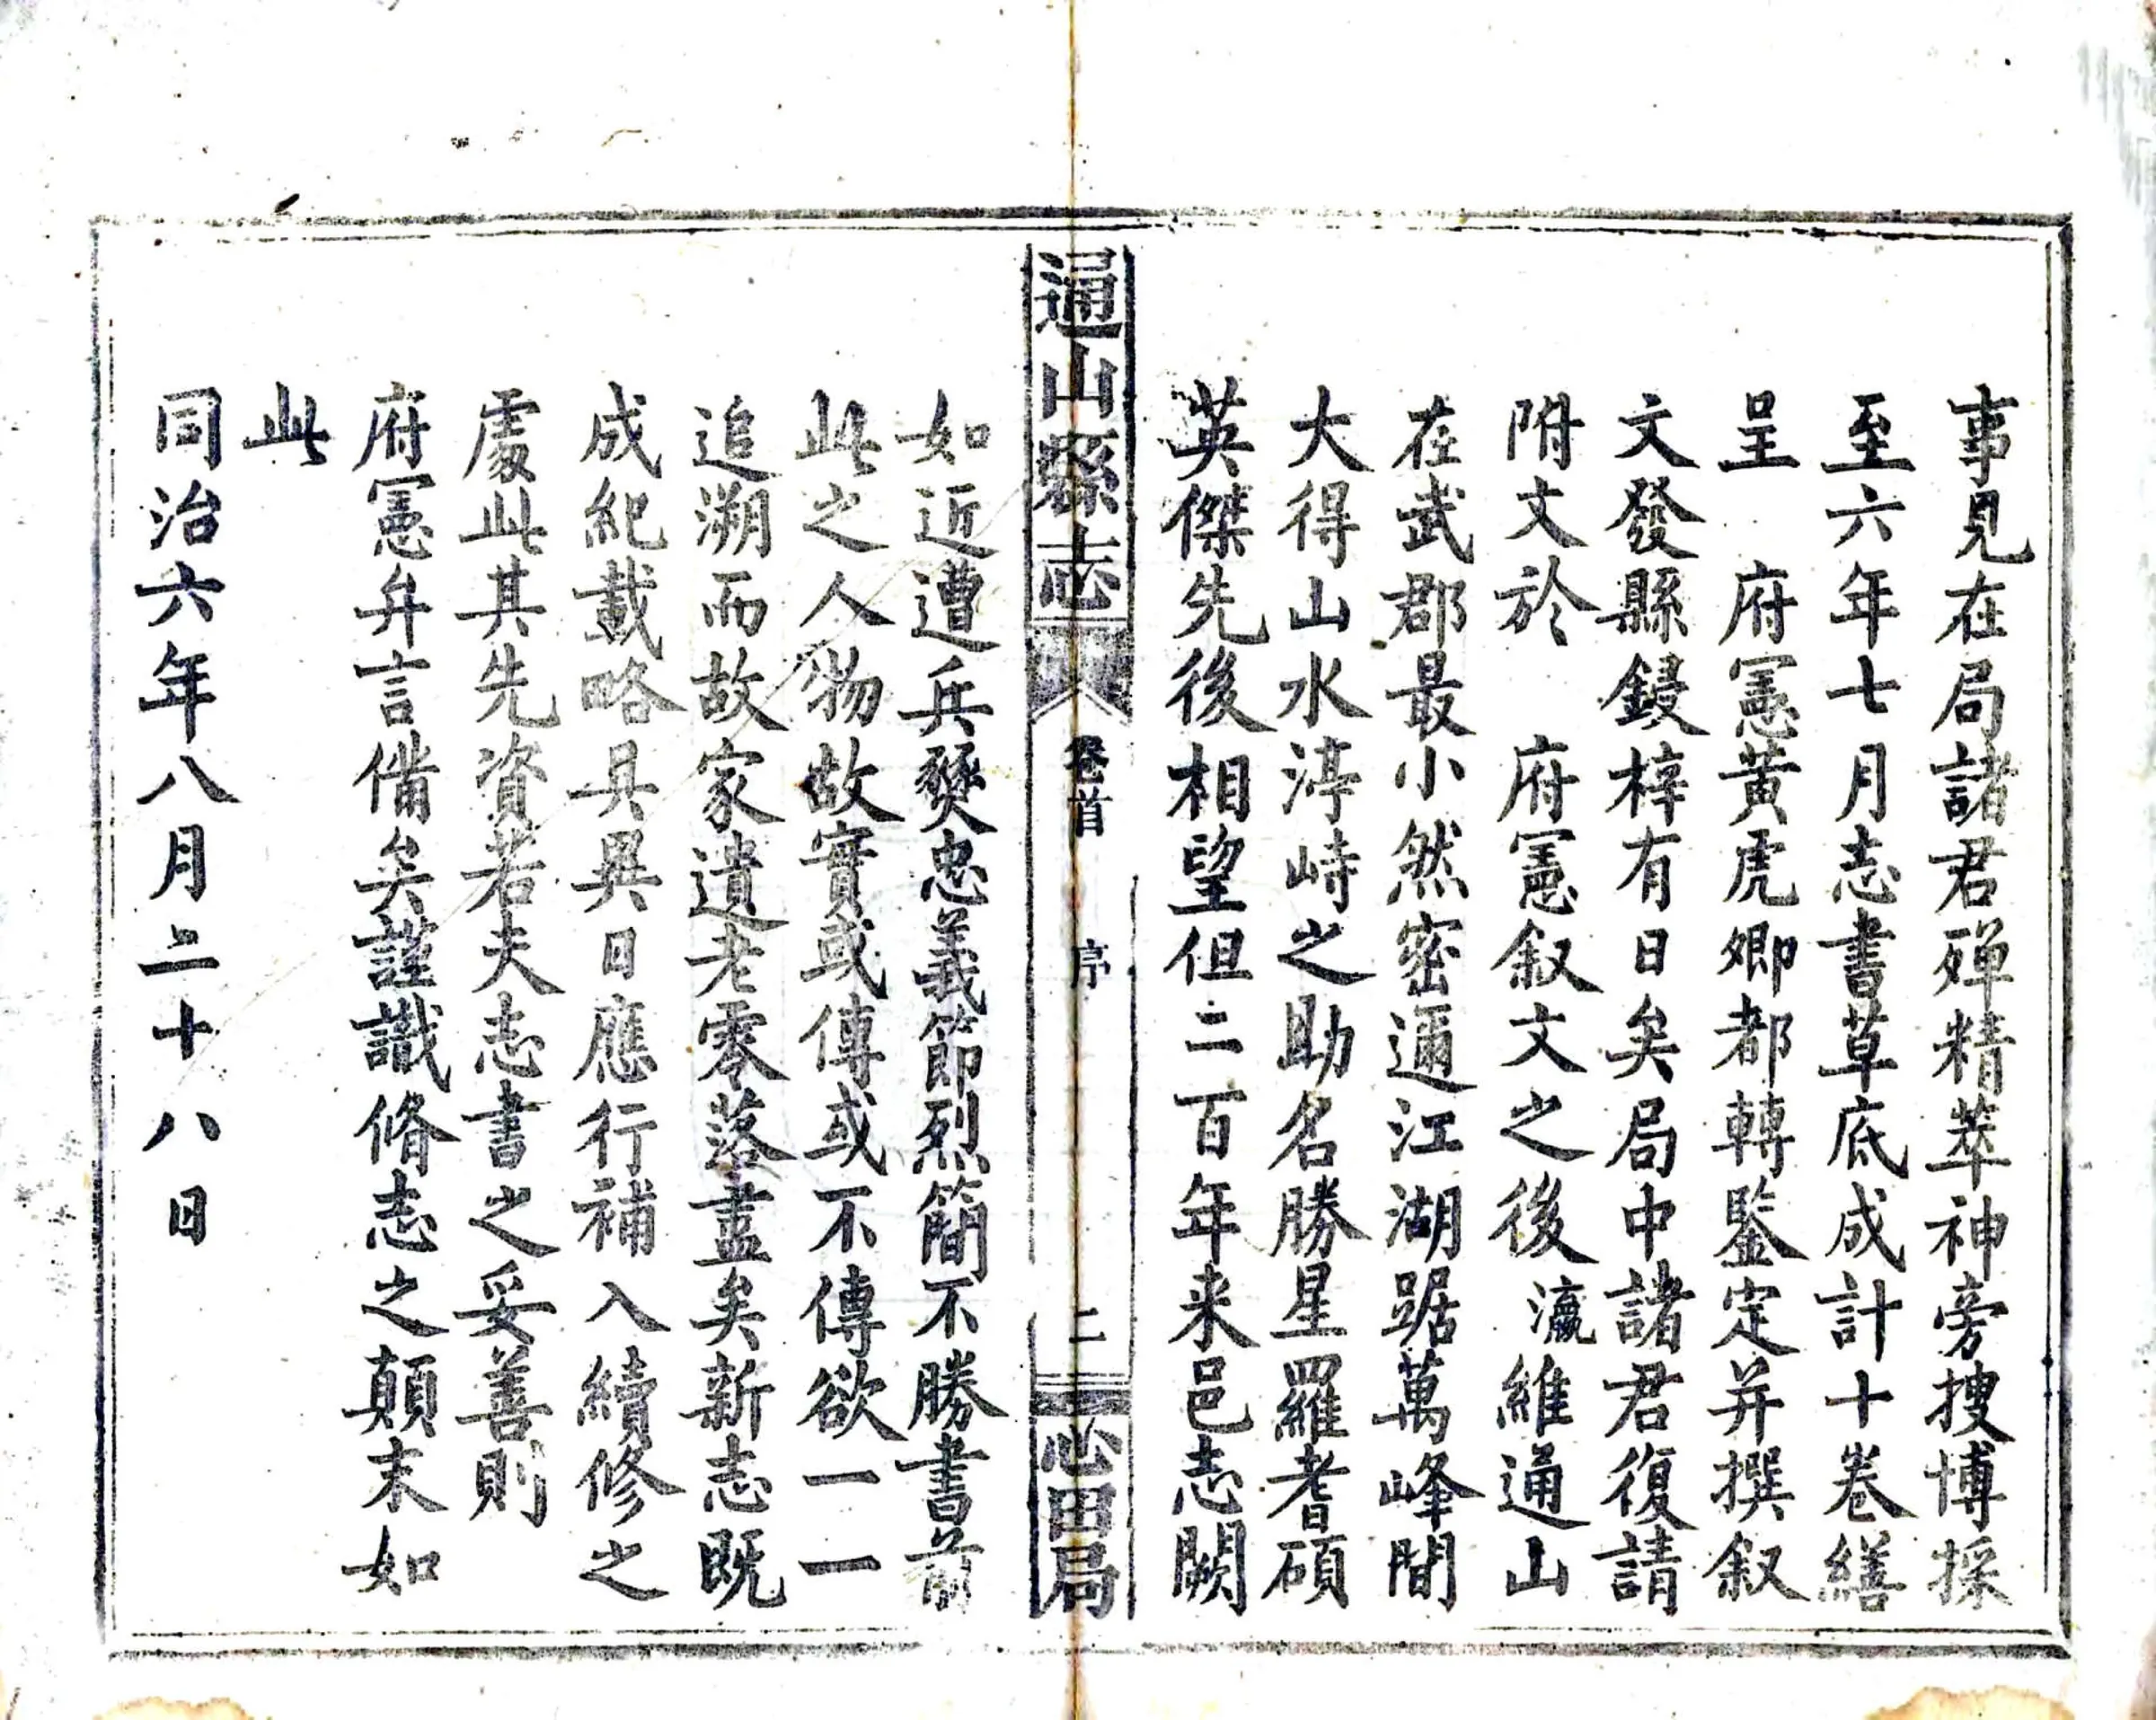 事見在局諸君殫精萃神旁搜博採
至六年七月志書草底成計十卷繕
呈　府憲黃虎卿都轉鑒定并撰叙
文發縣鋟梓有日矣局中諸君復請
附文於　府憲叙文之後瀛維通山
在武郡最小然密邇江湖踞萬峰間
大得山水渟峙之助名勝星羅耆碩
英傑先後相望但二百年来邑志闕
通山縣志　卷首　序　二　志局
如近遭兵燹忠義節烈簡不勝書前
此之人物故實或傳或不傳欲一一
追溯而故家遺老零落盡矣新志既
成紀載略具異日應行補入續修之
處此其先資若夫志書之妥善則
府憲弁言備矣謹識脩志之顛末如
此
同治六年八月二十八日